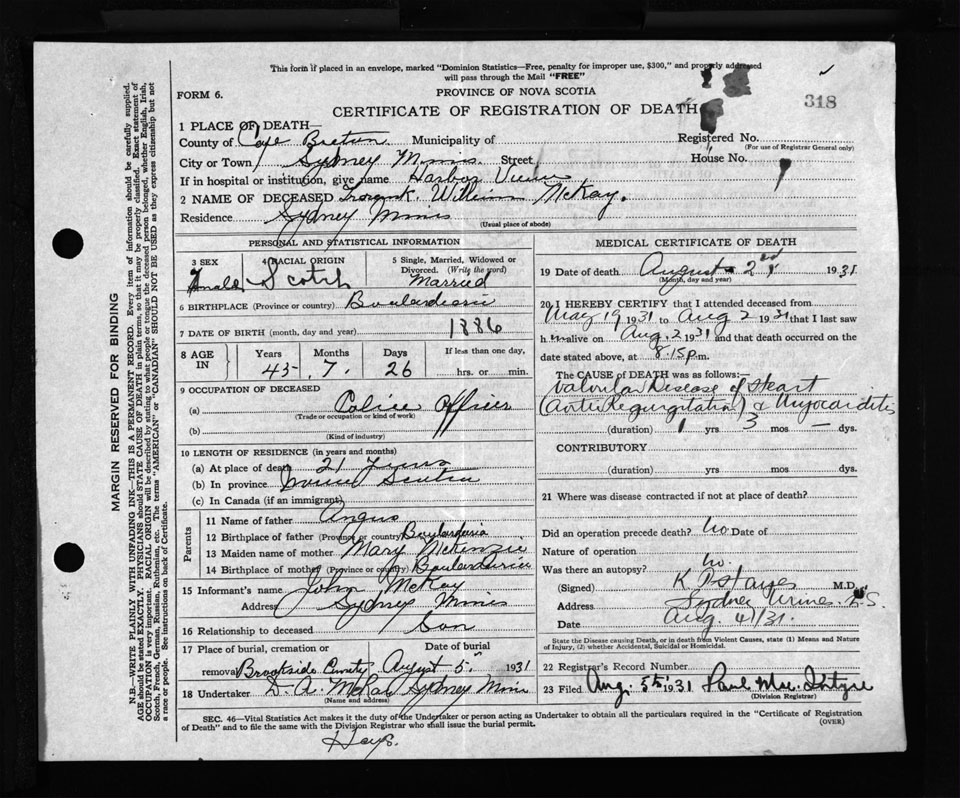 This form if placed in an envelope, marked "Dominion Statistics—Free, penalty for improper use, $300," and properly addressed
will pass through the Mail "FREE"
FORM 6.
PROVINCE OF NOVA SCOTIA
318
CERTIFICATE OF REGISTRATION OF DEATH
1 PLACE OF DEATH—
County of Cape Breton Municipality of Registered No.
(For use of Registrar General only)
City or Town Sydney Mines. Street House No.
If in hospital or institution, give name Harbor View
2 NAME OF DECEASED Frank William McKay.
Residence Sydney Mines
(Usual place of abode)
PERSONAL AND STATISTICAL INFORMATION
3 SEX 4 RACIAL ORIGIN Scotch
5 Single, Married, Widowed or Divorced. (Write the word) Married
6 BIRTHPLACE (Province or country) Boularderie
7 DATE OF BIRTH (month, day and year) 1886
8 AGE IN Years 45 Months 7. Days 26 If less than one day, hrs. or min.
9 OCCUPATION OF DECEASED
(a) Police Officer
(Trade or occupation or kind of work)
(b)
(Kind of industry)
10 LENGTH OF RESIDENCE (in years and months)
(a) At place of death 21 years
(b) In province Nova Scotia
(c) In Canada (if an immigrant)
Parents
11 Name of father Angus
12 Birthplace of father (Province or country) Boularderie
13 Maiden name of mother Mary McKenzie
14 Birthplace of mother (Province or country) Boularderie
15 Informant's name John McKay
Address Sydney Mines
16 Relationship to deceased Son
17 Place of burial, cremation or removal Brookside Date of burial August 5 1931
18 Undertaker D. A. McRae Sydney Mines
(Name and address)
MEDICAL CERTIFICATE OF DEATH
19 Date of death August 2nd 1931
(Month, day and year)
20 I HEREBY CERTIFY that I attended deceased from
May 19 1931 to Aug 2 1931 that I last saw
h im alive on Aug. 2 1931 and that death occurred on the
date stated above, at 8.15 p.m.
The CAUSE of DEATH was as follows:—
Valvular Disease of Heart
(Aortic Regurgitation) & Myocarditis
(duration) 1 yrs 3 mos — dys.
CONTRIBUTORY
(duration) yrs. mos. dys.
21 Where was disease contracted if not at place of death?
Did an operation precede death? No Date of
Nature of operation
Was there an autopsy? No.
(Signed) Hayes M.D.
Address Sydney Mines N.S.
Date Aug. 4/31.
State the Disease causing Death, or in death from Violent Causes, state (1) Means and Nature of Injury, (2) whether Accidental, Suicidal or Homicidal.
22 Registrar's Record Number
23 Filed Aug. 5th 1931
(Division Registrar)
SEC. 46—Vital Statistics Act makes it the duty of the Undertaker or person acting as Undertaker to obtain all the particulars required in the "Certificate of Registration
of Death" and to file the same with the Division Registrar who shall issue the burial permit.
(OVER)
Hays.
MARGIN RESERVED FOR BINDING
N.B.—WRITE PLAINLY WITH UNFADING INK—THIS IS A PERMANENT RECORD. Every item of information should be carefully supplied.
AGE should be stated EXACTLY. PHYSICIANS should STATE CAUSE OF DEATH in plain terms, so that it may be properly classified. Exact statement of
OCCUPATION is very important. RACIAL ORIGIN will be described by stating to what people or tongue the deceased person belonged, whether English, Irish,
Scotch, French, German, Russian, Ruthenian, etc. The terms "AMERICAN" or "CANADIAN" SHOULD NOT BE USED as they express citizenship but not
a race or people. See instructions on back of Certificate.